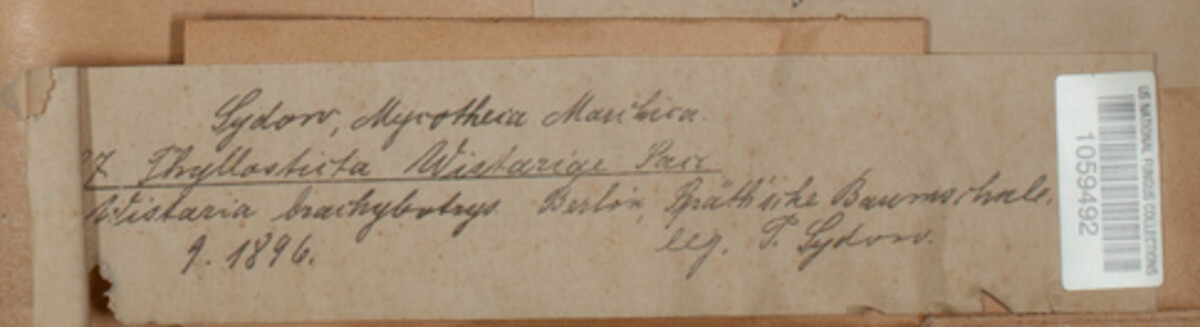 Sydow, Mycotheca Marchica.
27 Phyllosticta Wistariae Sacc.
Wistaria brachybotrys. Berlin, Späth'sche Baumschule.
9. 1896.
leg. P. Sydow.
US NATIONAL FUNGUS COLLECTIONS
1059492